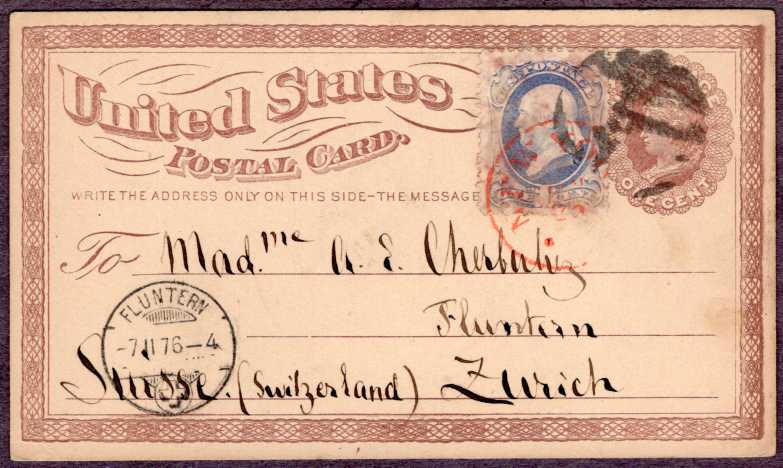 United States
POSTAL CARD.
U.S. POSTAGE
WRITE THE ADDRESS ONLY ON THIS SIDE-THE MESSAGE
ONE CENT
To Mad.me A. E. Cherbuliez
Fluntern
FLUNTERN
-7 II 76-4
Suisse. (Switzerland) Zurich